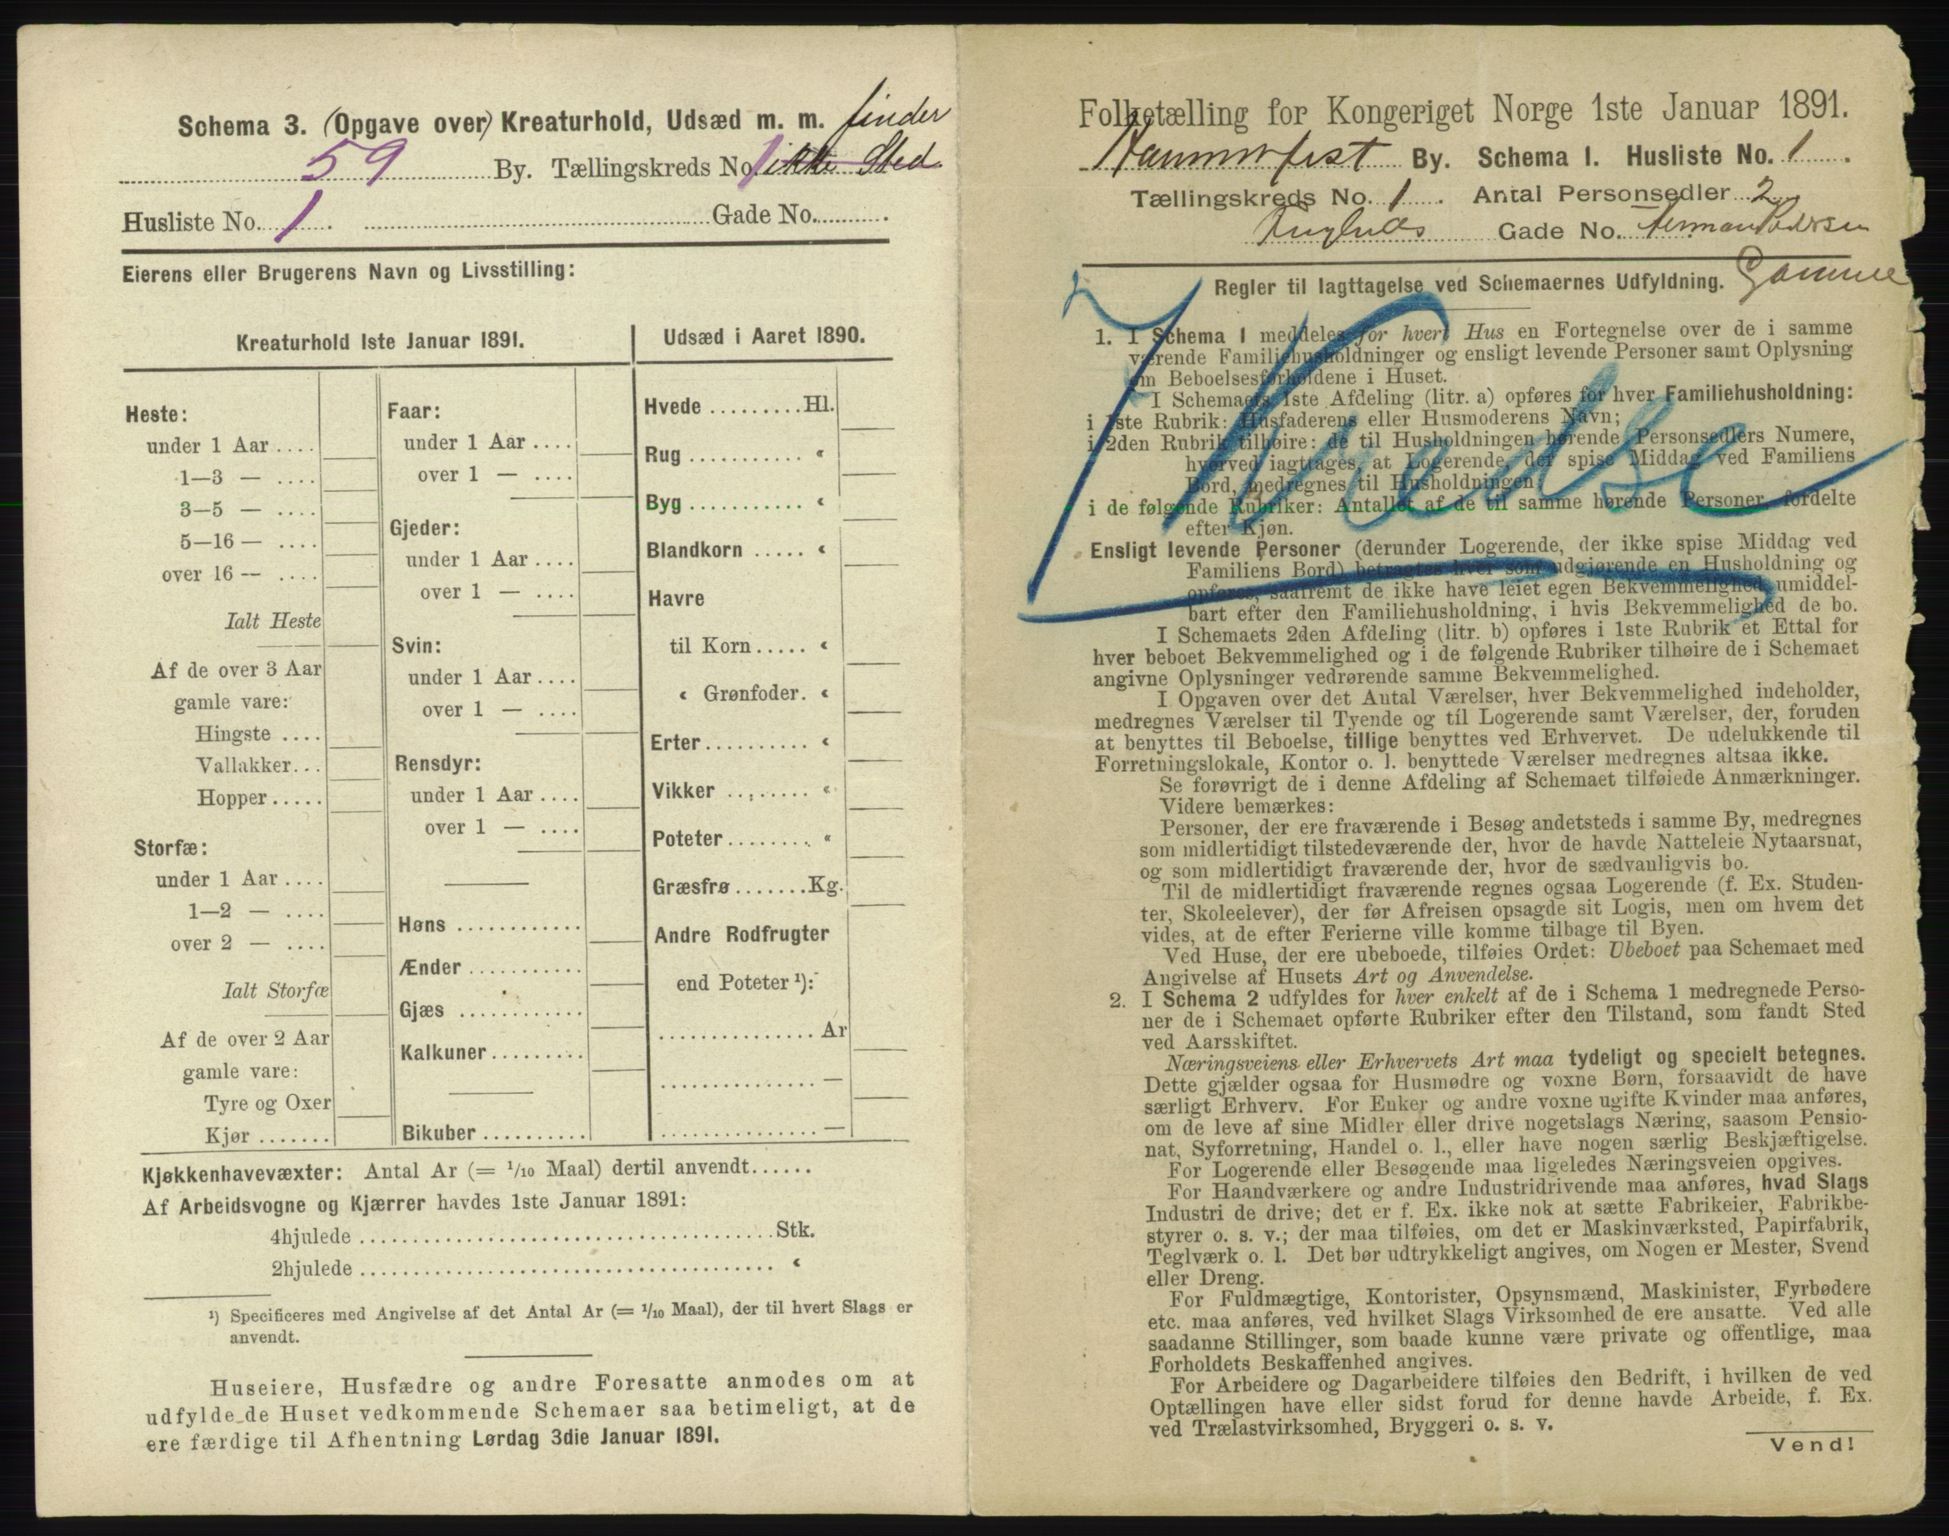 Schema 3. (Opgave over) Kreaturhold, Udsæd m. m. finder
59 By. Tællingskreds No. 1 ikke Sted.
Husliste No. 1 Gade No.
Eierens eller Brugerens Navn og Livsstilling:
Kreaturhold 1ste Januar 1891.
Heste:
under 1 Aar ....
1—3 — ....
3—5 — ....
5—16 — ....
over 16 — ....
Ialt Heste
Af de over 3 Aar
gamle vare:
Hingste ....
Vallakker...
Hopper.....
Storfæ:
under 1 Aar ....
1—2 — ....
over 2 — ....
Ialt Storfæ
Af de over 2 Aar
gamle vare:
Tyre og Oxer
Kjør .......
Faar:
under 1 Aar ....
over 1 — ....
Gjeder:
under 1 Aar ....
over 1 — ....
Svin:
under 1 Aar ....
over 1 — ....
Rensdyr:
under 1 Aar ....
over 1 — ....
Høns ............
Ænder ...........
Gjæs ............
Kalkuner.........
Bikuber..........
Udsæd i Aaret 1890.
Hvede .........Hl.
Rug ........... «
Byg ........... «
Blandkorn ..... «
Havre
til Korn..... «
« Grønfoder. «
Erter.......... «
Vikker ........ «
Poteter ........ «
Græsfrø .......Kg.
Andre Rodfrugter
end Poteter ¹):
............... Ar
............... —
............... —
Kjøkkenhavevæxter: Antal Ar (= 1/10 Maal) dertil anvendt......
Af Arbeidsvogne og Kjærrer havdes 1ste Januar 1891:
4hjulede ......................................Stk.
2hjulede ...................................... «
¹) Specificeres med Angivelse af det Antal Ar (= 1/10 Maal), der til hvert Slags er
anvendt.
Huseiere, Husfædre og andre Foresatte anmodes om at
udfylde de Huset vedkommende Schemaer saa betimeligt, at de
ere færdige til Afhentning Lørdag 3die Januar 1891.
Folketælling for Kongeriget Norge 1ste Januar 1891.
Hammerfest By. Schema 1. Husliste No. 1.
Tællingskreds No. 1. Antal Personsedler 2
Fuglnæs Gade No. Herman Pedersen
Gamme
Regler til Iagttagelse ved Schemaernes Udfyldning.
1. Kredse
1. I Schema 1 meddeles for hvert Hus en Fortegnelse over de i samme
værende Familiehusholdninger og ensligt levende Personer samt Oplysning
om Beboelsesforholdene i Huset.
I Schemaets 1ste Afdeling (litr. a) opføres for hver Familiehusholdning:
i 1ste Rubrik: Husfaderens eller Husmoderens Navn;
i 2den Rubrik tilhøire: de til Husholdningen hørende Personsedlers Numere,
hvorved iagttages, at Logerende, der spise Middag ved Familiens
Bord, medregnes til Husholdningen;
i de følgende Rubriker: Antallet af de til samme hørende Personer, fordelte
efter Kjøn.
Ensligt levende Personer (derunder Logerende, der ikke spise Middag ved
Familiens Bord) betragtes hver som udgjørende en Husholdning og
opføres, saafremt de ikke have leiet egen Bekvemmelighed umiddel-
bart efter den Familiehusholdning, i hvis Bekvemmelighed de bo.
I Schemaets 2den Afdeling (litr. b) opføres i 1ste Rubrik et Ettal for
hver beboet Bekvemmelighed og i de følgende Rubriker tilhøire de i Schemaet
angivne Oplysninger vedrørende samme Bekvemmelighed.
I Opgaven over det Antal Værelser, hver Bekvemmelighed indeholder,
medregnes Værelser til Tyende og til Logerende samt Værelser, der, foruden
at benyttes til Beboelse, tillige benyttes ved Erhvervet. De udelukkende til
Forretningslokale, Kontor o. l. benyttede Værelser medregnes altsaa ikke.
Se forøvrigt de i denne Afdeling af Schemaet tilføiede Anmærkninger.
Videre bemærkes:
Personer, der ere fraværende i Besøg andetsteds i samme By, medregnes
som midlertidigt tilstedeværende der, hvor de havde Natteleie Nytaarsnat,
og som midlertidigt fraværende der, hvor de sædvanligvis bo.
Til de midlertidigt fraværende regnes ogsaa Logerende (f. Ex. Studen-
ter, Skoleelever), der før Afreisen opsagde sit Logis, men om hvem det
vides, at de efter Ferierne ville komme tilbage til Byen.
Ved Huse, der ere ubeboede, tilføies Ordet: Ubeboet paa Schemaet med
Angivelse af Husets Art og Anvendelse.
2. I Schema 2 udfyldes for hver enkelt af de i Schema 1 medregnede Perso-
ner de i Schemaet opførte Rubriker efter den Tilstand, som fandt Sted
ved Aarsskiftet.
Næringsveiens eller Erhvervets Art maa tydeligt og specielt betegnes.
Dette gjælder ogsaa for Husmødre og voxne Børn, forsaavidt de have
særligt Erhverv. For Enker og andre voxne ugifte Kvinder maa anføres,
om de leve af sine Midler eller drive nogetslags Næring, saasom Pensio-
nat, Syforretning, Handel o. l., eller have nogen særlig Beskjæftigelse.
For Logerende eller Besøgende maa ligeledes Næringsveien opgives.
For Haandværkere og andre Industridrivende maa anføres, hvad Slags
Industri de drive; det er f. Ex. ikke nok at sætte Fabrikeier, Fabrikbe-
styrer o. s. v.; der maa tilføies, om det er Maskinværksted, Papirfabrik,
Teglværk o. l. Det bør udtrykkeligt angives, om Nogen er Mester, Svend
eller Dreng.
For Fuldmægtige, Kontorister, Opsynsmænd, Maskinister, Fyrbødere
etc. maa anføres, ved hvilket Slags Virksomhed de ere ansatte. Ved alle
saadanne Stillinger, som baade kunne være private og offentlige, maa
Forholdets Beskaffenhed angives.
For Arbeidere og Dagarbeidere tilføies den Bedrift, i hvilken de ved
Optællingen have eller sidst forud for denne havde Arbeide, f. Ex.
ved Trælastvirksomhed, Bryggeri o. s. v.
Vend!